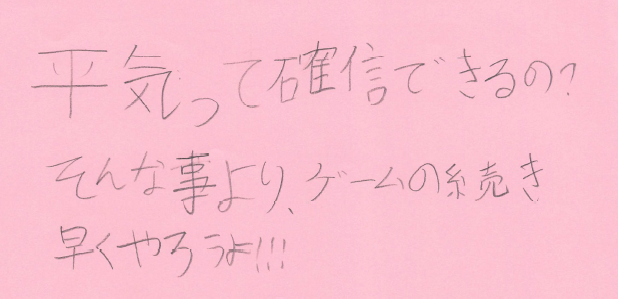 平気って確信できるの?
そんな事より、ゲームの続き
早くやろうよ!!!